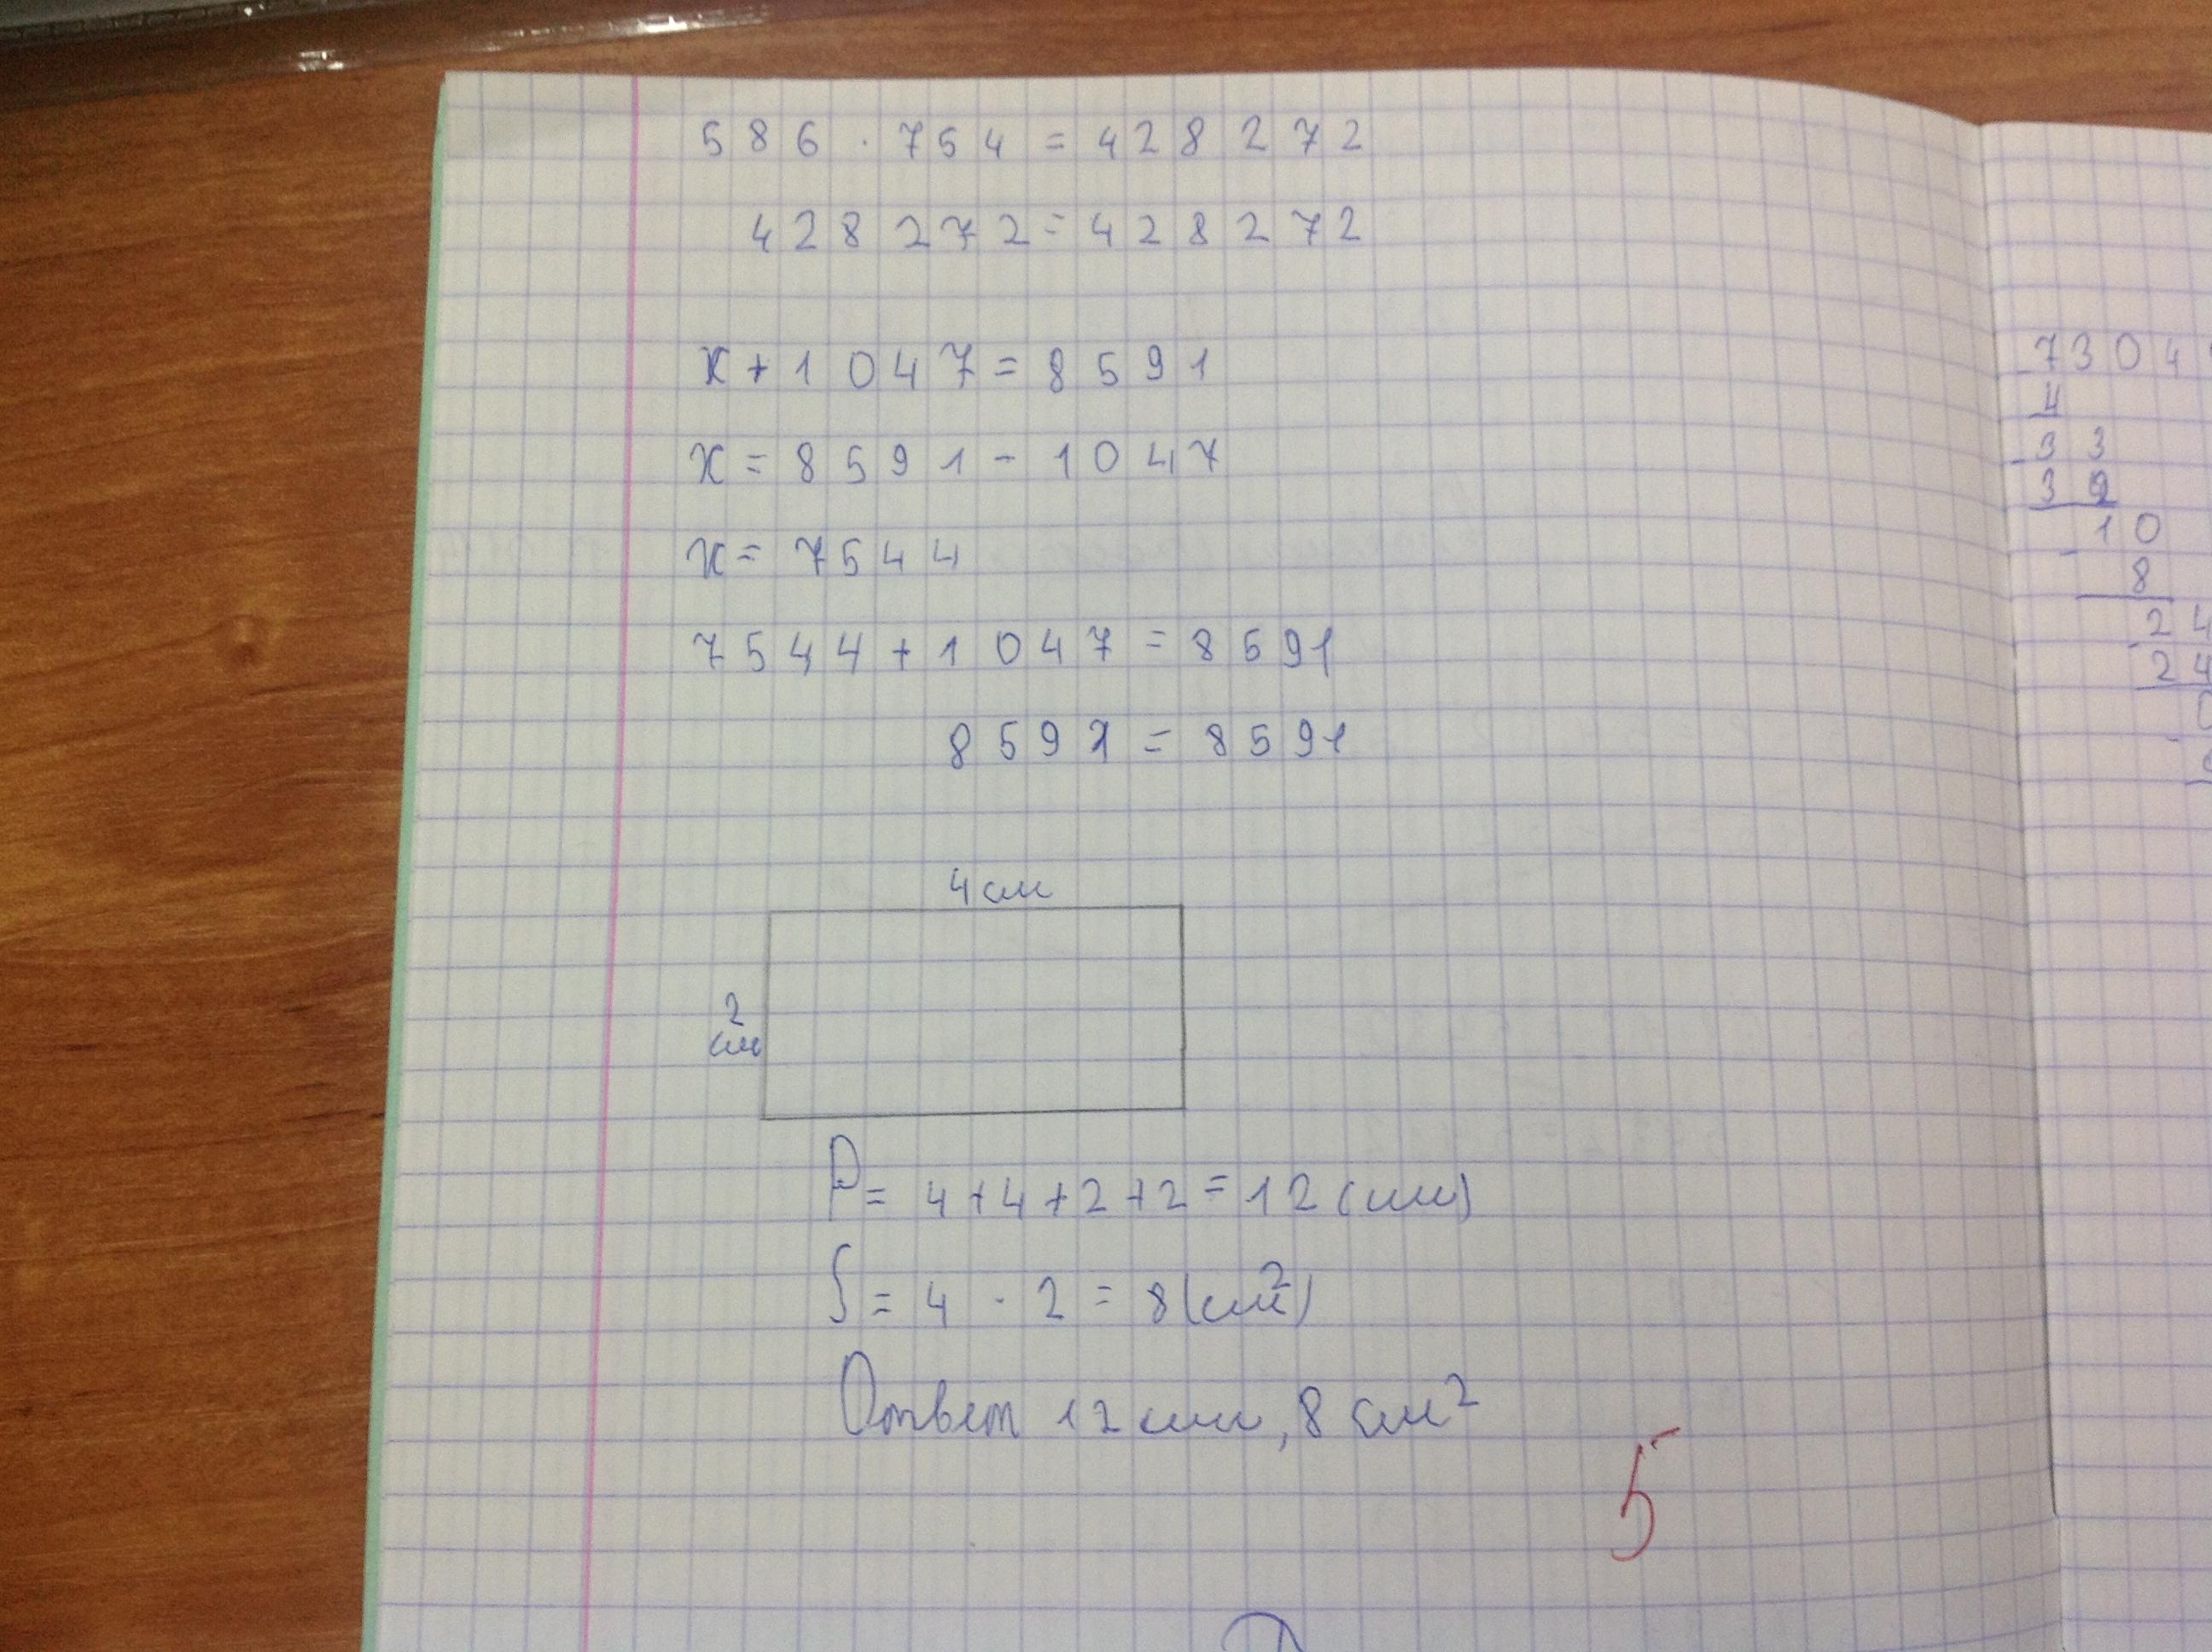 586 · 754 = 428 272
428 272 = 428 272
x + 1 047 = 8591
x = 8591 - 1047
x = 7544
7544 + 1 047 = 8591
8591 = 8591
4 см
2
см
P = 4 + 4 + 2 + 2 = 12 (см)
S = 4 · 2 = 8 (см²)
Ответ 12 см, 8 см²
5
7304
4
33
32
10
8
24
24